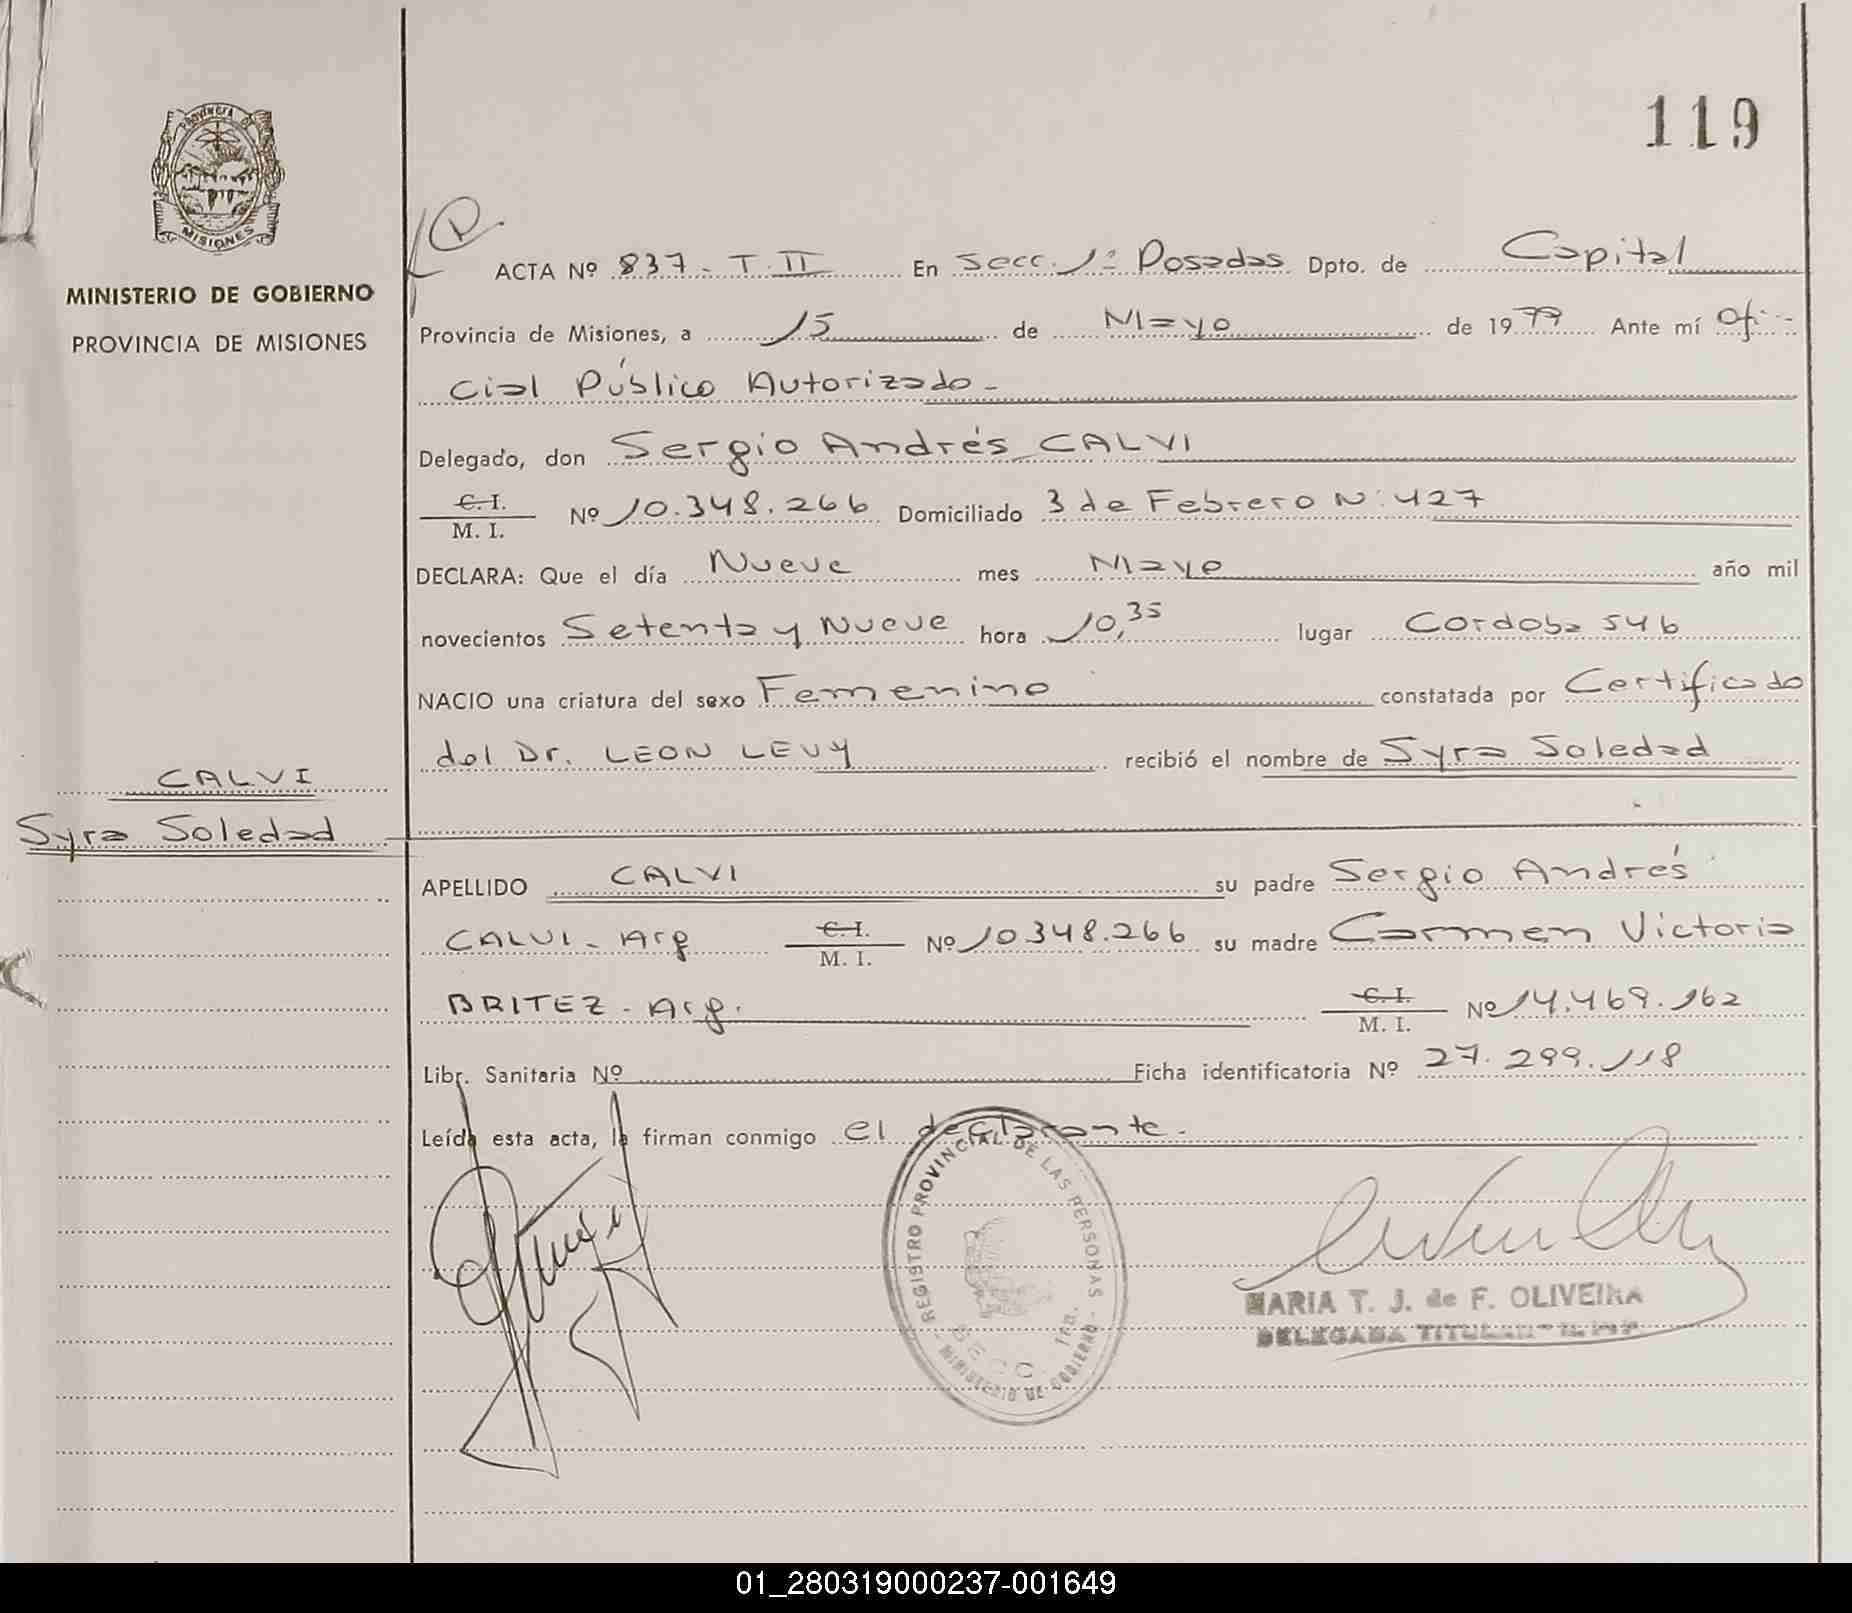 119
PROVINCIA DE
MISIONES
MINISTERIO DE GOBIERNO
PROVINCIA DE MISIONES
ACTA Nº 837 - T. II En Secc. 1ª Posadas Dpto. de Capital
Provincia de Misiones, a 15 de Mayo de 1979 Ante mí Ofi-
cial Público Autorizado -
Delegado, don Sergio Andrés CALVI
C. I.
M. I. Nº 10.348.266 Domiciliado 3 de Febrero Nº 427
DECLARA: Que el día Nueve mes Mayo año mil
novecientos Setenta y Nueve hora 10,35 lugar Cordoba 546
NACIO una criatura del sexo Femenino constatada por Certificado
del Dr. LEON LEVY recibió el nombre de Syra Soledad
CALVI
Syra Soledad
APELLIDO CALVI su padre Sergio Andrés
CALVI - Arg C. I.
M. I. Nº 10348.266 su madre Carmen Victoria
BRITEZ - Arg. C. I.
M. I. Nº 14.469.162
Libr. Sanitaria Nº Ficha identificatoria Nº 27.299.118
Leída esta acta, la firman conmigo el declarante -
REGISTRO PROVINCIAL DE LAS PERSONAS
MINISTERIO DE GOBIERNO
SECC. 1RA.
MARIA T. J. de F. OLIVEIRA
DELEGADA TITULAR
01_280319000237-001649